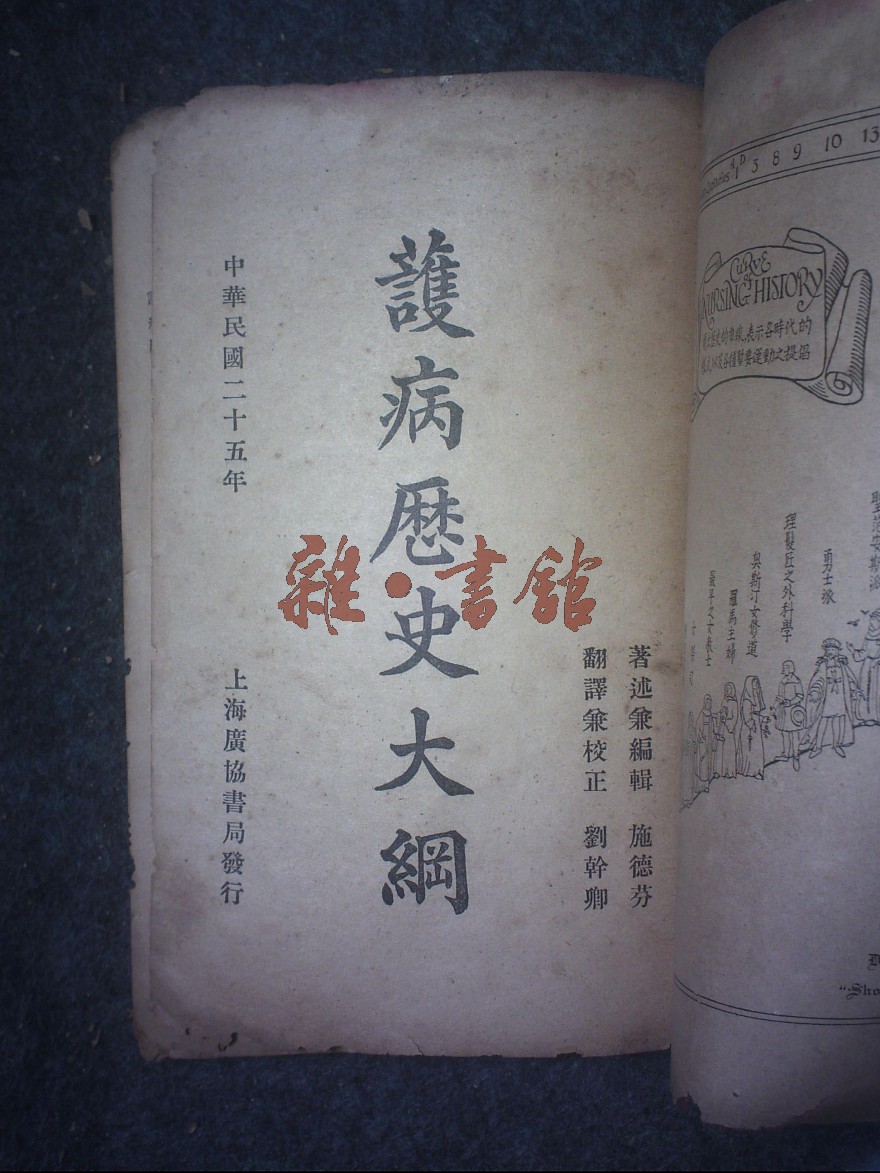 著述兼編輯 施德芬
翻譯兼校正 劉幹卿
護病歷史大綱
中華民國二十五年
上海廣協書局發行
雜·書館
A.D.
1 3 8 9 10 13
CURVE
OF
NURSING HISTORY
表示各時代的
運動之提倡
勇士派
理髮匠之外科學
奧斯汀女修道
羅馬主婦
"Sho